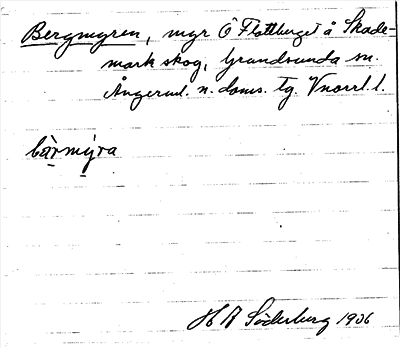 Bergmyren, myr Ö Flattberget å Skade-
mark skog, Grundsunda sn.
Ångerml. n. doms. tg. Vnorrl. l.
bärmýra
H R Söderberg 1936